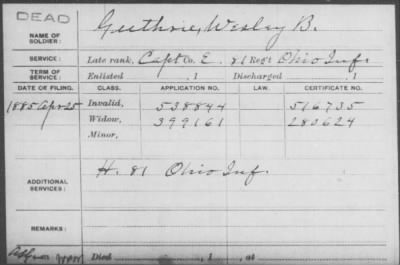 DEAD
NAME OF SOLDIER: Guthrie, Wesley B.
SERVICE: Late rank, Capt Co. E, 81 Reg't Ohio Inf.
TERM OF SERVICE: Enlisted , 1 Discharged , 1
DATE OF FILING. CLASS. APPLICATION NO. LAW. CERTIFICATE NO.
1885 Apr 25 Invalid, 538844 516735
Widow, 399161 280624
Minor,
ADDITIONAL SERVICES: H. 81 Ohio Inf.
REMARKS:
Died , 1 , at